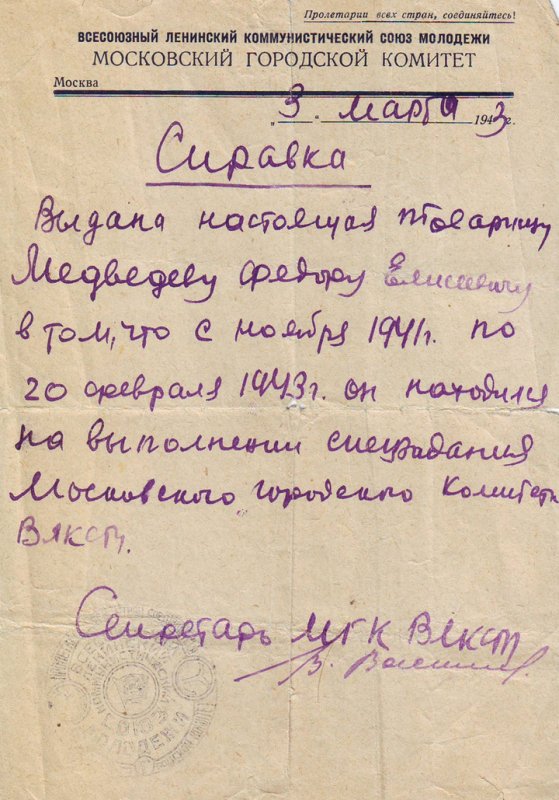 Пролетарии всех стран, соединяйтесь!
ВСЕСОЮЗНЫЙ ЛЕНИНСКИЙ КОММУНИСТИЧЕСКИЙ СОЮЗ МОЛОДЕЖИ
МОСКОВСКИЙ ГОРОДСКОЙ КОМИТЕТ
Москва
„3. марта 1943 г.
Справка
Выдана настоящая товарищу
Медведеву Федору Елисеевичу
в том, что с ноября 1941г. по
20 февраля 1943г. он находился
на выполнении спецзадания
Московского городского Комитета
ВЛКСМ.
Секретарь МГК ВЛКСМ
СОЮЗ
МОЛОДЕЖИ